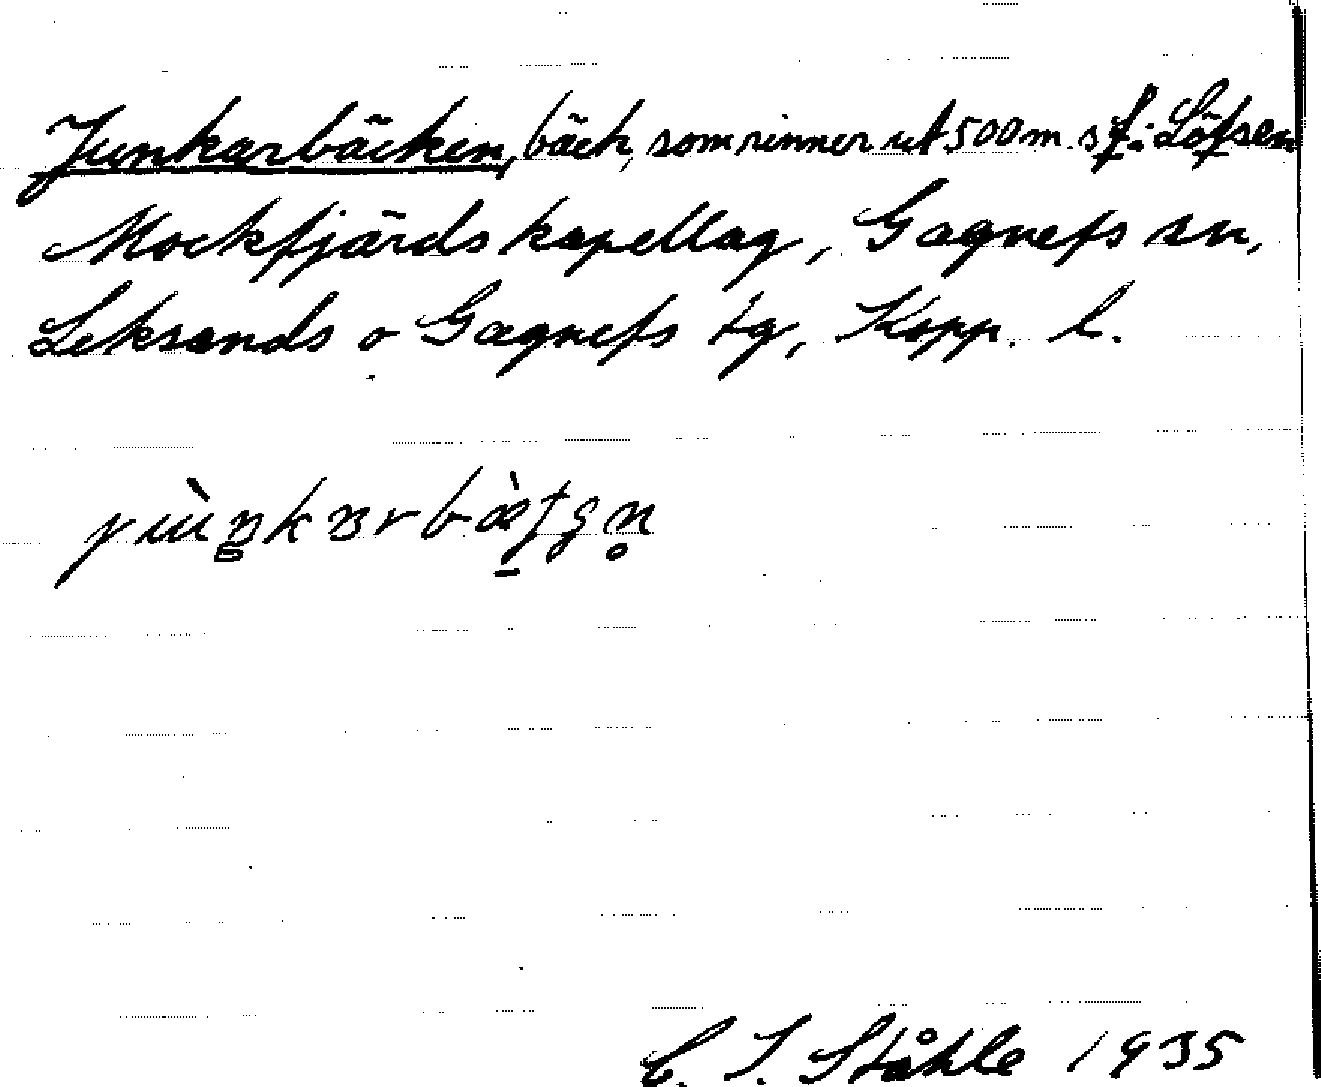 Junkarbäcken, bäck, som rinner ut 500 m. s f. Löfsen
Mockfjärds kapellag, Gagnefs sn,
Leksands o Gagnefs tg, Kopp. l.
C. I. Ståhle 1935